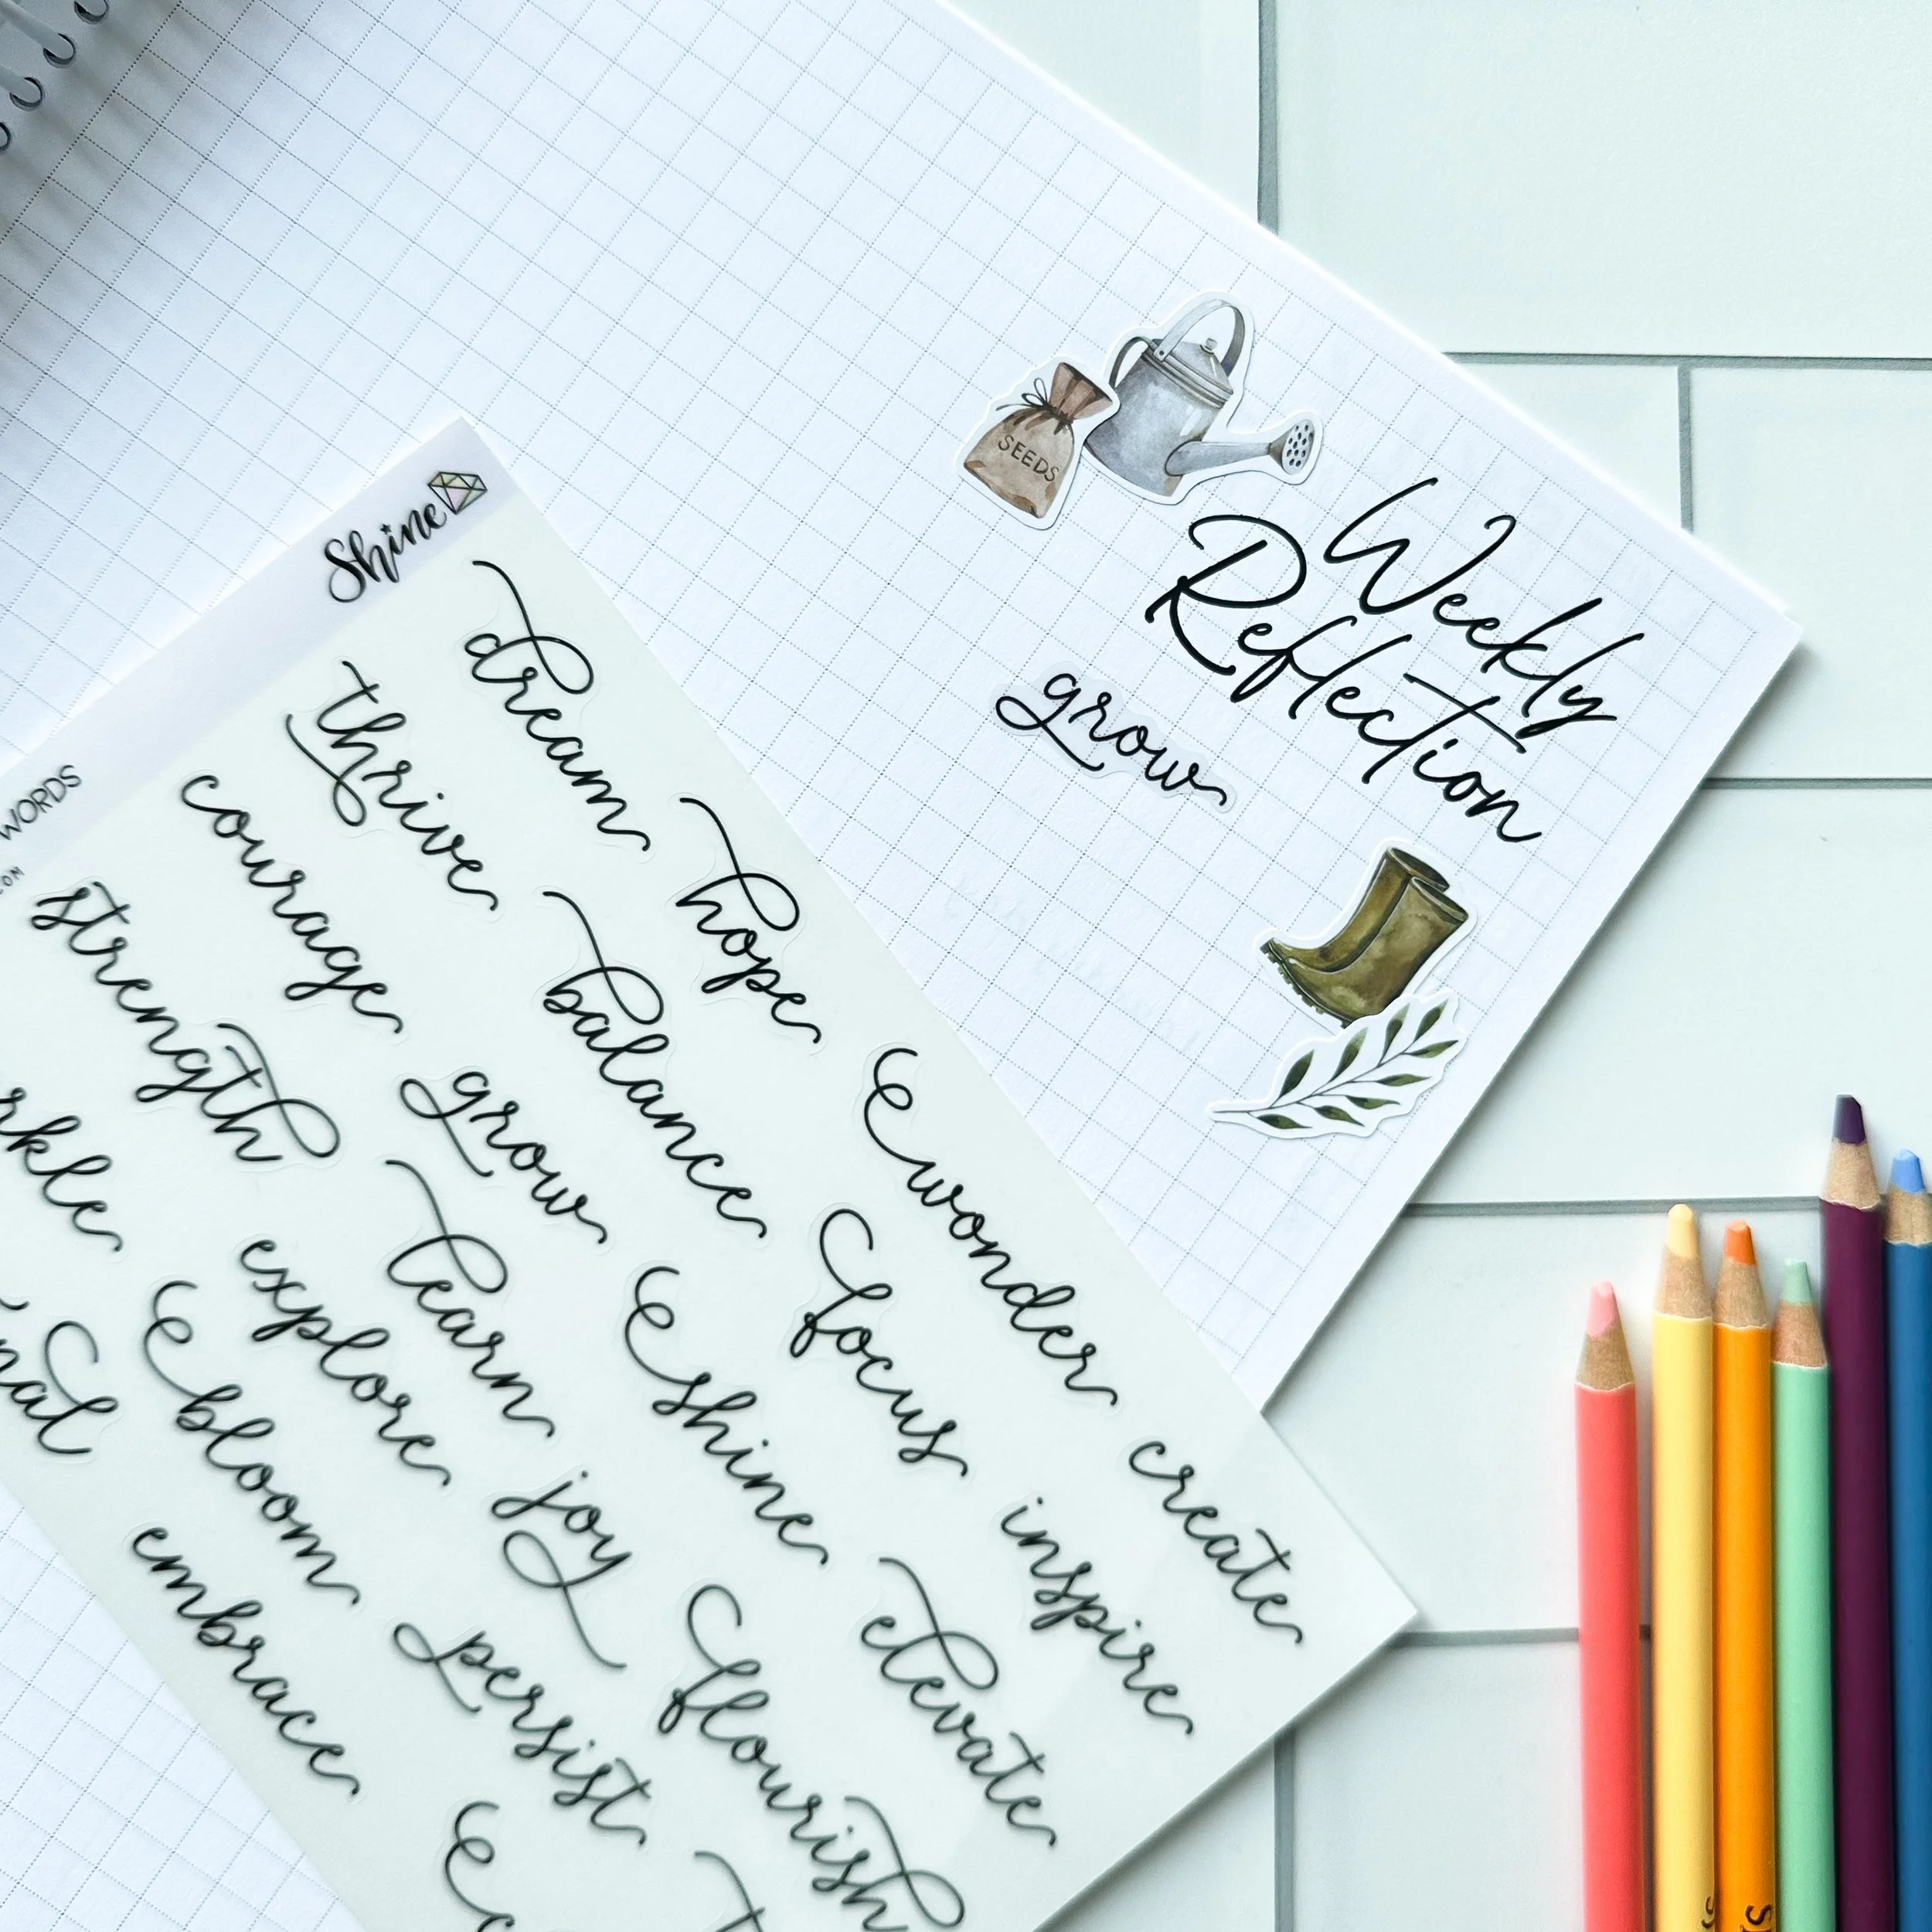 SEEDS
Weekly
Reflection
grow
Shine
WORDS
dream
hope
wonder
create
thrive
balance
focus
inspire
courage
grow
shine
elevate
strength
learn
joy
flourish
explore
persist
bloom
embrace